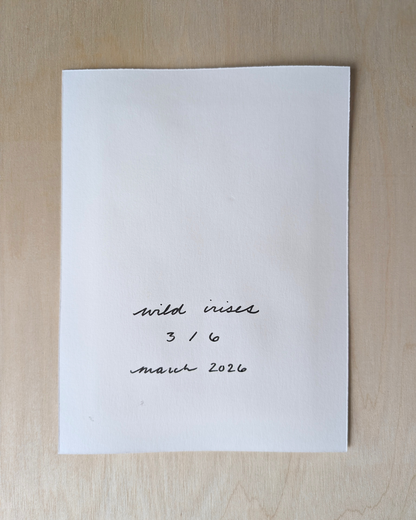 wild irises
3 / 6
march 2026